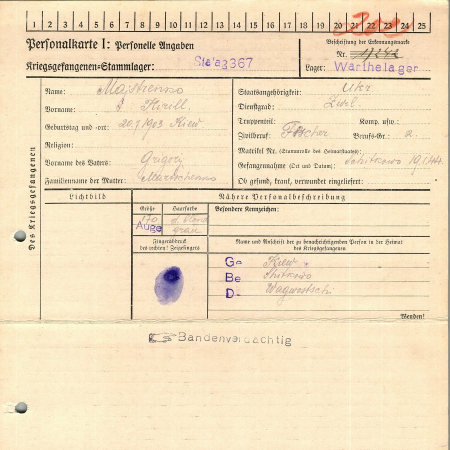 1 2 3 4 5 6 7 8 9 10 11 12 13 14 15 16 17 18 19 20 21 22 23 24 25
Personalkarte I: Personelle Angaben
Kriegsgefangenen-Stammlager: Stalag 367
Beschriftung der Erkennungsmarke
Nr.
Lager: Warthelager
Des Kriegsgefangenen
Name:
Vorname: Kirill
Geburtstag und -ort: 20.7.1903 Kiew
Religion:
Vorname des Vaters: Grigorij
Familienname der Mutter:
Staatsangehörigkeit: Ukr
Dienstgrad: Zivil.
Truppenteil: Komp. usw.:
Zivilberuf: Berufs-Gr.: a
Matrikel Nr. (Stammrolle des Heimatstaates):
Gefangennahme (Ort und Datum): 19.1.44.
Ob gesund, krank, verwundet eingeliefert:
Lichtbild
Nähere Personalbeschreibung
Größe Haarfarbe Besondere Kennzeichen:
170 d. blond
Auge grau
Fingerabdruck
des rechten! Zeigefingers
Name und Anschrift der zu benachrichtigenden Person in der Heimat
des Kriegsgefangenen
Ge Kiew
Be
D-
Wenden!
Bandenverdächtig